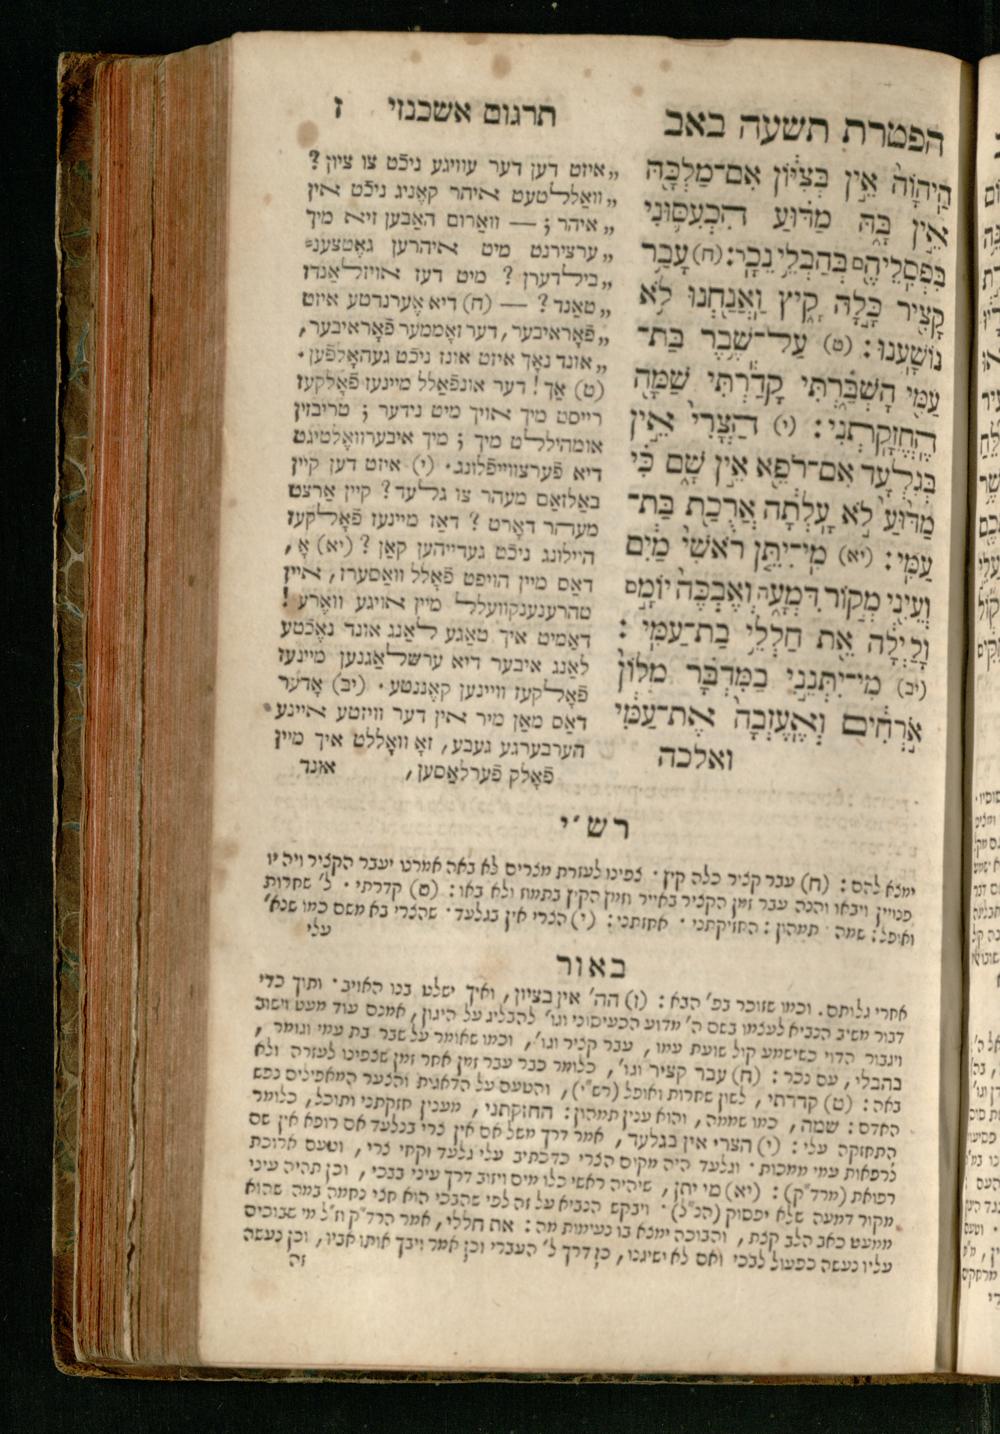 הפטרת תשעה באב
הַֽיהֹוָה֙ אֵ֣ין בְּצִיּ֔וֹן אִם־מַלְכָּ֖הּ
אֵ֣ין בָּ֑הּ מַדּ֗וּעַ הִכְעִס֛וּנִי
בִּפְסִלֵיהֶ֖ם בְּהַבְלֵ֥י נֵכָֽר: (ח) עָבַ֥ר
קָצִ֖יר כָּ֣לָה קָ֑יִץ וַאֲנַ֖חְנוּ ל֥וֹא
נוֹשָֽׁעְנוּ: (ט) עַל־שֶׁ֥בֶר בַּת־
עַמִּ֖י הָשְׁבַּ֑רְתִּי קָדַ֕רְתִּי שַׁמָּ֖ה
הֶחֱזִקָֽתְנִי: (י) הַצֳרִי֙ אֵ֣ין
בְּגִלְעָ֔ד אִם־רֹפֵ֖א אֵ֣ין שָׁ֑ם כִּ֗י
מַדּ֙וּעַ֙ לֹ֣א עָֽלְתָ֔ה אֲרֻכַ֖ת בַּת־
עַמִּֽי: (יא) מִֽי־יִתֵּ֤ן רֹאשִׁי֙ מַ֔יִם
וְעֵינִ֖י מְק֣וֹר דִּמְעָ֑ה וְאֶבְכֶּה֙ יוֹמָ֣ם
וָלַ֔יְלָה אֵ֖ת חַלְלֵ֥י בַת־עַמִּֽי:
(יב) מִֽי־יִתְּנֵ֣נִי בַמִּדְבָּ֗ר מְלוֹן֙
אֹֽרְחִ֔ים וְאֶֽעֶזְבָה֙ אֶת־עַמִּ֔י
ואלכה
תרגום אשכנזי ז
„איזט דען דער עוויגע ניכֿט צו ציון?
„וואַללטעט איהר קאָניג ניכֿט אין
„איהר; — וואַרום האָבען זיא מיך
„ערצירנט מיט איהרען גאָטצענ=
„בילדערן? מיט דעז אויזלאַנדז
„טאַנד? — (ח) דיא אֶערנדטע איזט
„פֿאָראיבער, דער זאָממער פֿאָראיבער,
„אונד נאָך איזט אונז ניכֿט געהאָלפֿען.
(ט) אַך! דער אונפֿאַלל מיינעז פֿאָלקעז
רייסט מיך אויך מיט נידער; טריבזין
אומהיללט מיך; מיך איבערוואָלטיגט
דיא פֿערצווייפֿלונג. (י) איזט דען קיין
באַלזאַם מעהר צו גלעד? קיין אַרצט
מעהר דאָרט? דאַז מיינעז פֿאָלקעז
היילונג ניכֿט געדייהען קאַן? (יא) אָ,
דאַס מיין הויפט פֿאָלל וואַסערז, איין
טהרענענקוועלל מיין אויגע ווארע!
דאַמיט איך טאַגע לאַנג אונד נאֶכֿטע
לאַנג איבער דיא ערשלאַגנען מיינעז
פֿאָלקעז וויינען קאָננטע. (יב) אָדער
דאַס מאַן מיר אין דער וויזטע איינע
הערבערגע געבע, זאָ וואָללט איך מיין
פֿאָלק פֿערלאַסען, אונד
רש״י
ימצא להם: (ח) עבר קציר כלה קיץ. צפינו לעזרת מצרים לא באה אמרנו יעבר הקציר ויהיו
פנויין ויבאו והנה עבר זמן הקציר באייר וזמן הקיץ בתמוז ולא באו: (ט) קדרתי. ל׳ שחרות
ואופל: שמה תמהון: החזיקתני. אחזתני: (י) הצרי אין בגלעד. שהצרי בא משם כמו שנא׳
עלי
באור
אחרי גלותם. וכמו שזוכר בפ׳ הבא: (ז) הה׳ אין בציון, ואיך ישלט בנו האויב. ותוך כדי
דבור משיב הנביא לעצמו בשם ה׳ מדוע הכעיסוני וגו׳ להבליג על היגון, אמנם עוד מעט וישוב
ויגבור הדוי כשישמע קול שועת עמו, עבר קציר וגו׳, וכמו שאומר על שבר בת עמי וגומר,
בהבלי, עם נכר: (ח) עבר קציר וגו׳, כלומר כבר עבר זמן אחר זמן שצפינו לעזרה ולא
באה: (ט) קדרתי, לשון שחרות ואופל (רש״י), והטעם על הדאגות והצער המאפילים נפש
האדם: שמה, כמו שממה, והוא ענין תמהון: החזקתני, מענין חזקתני ותוכל, כלומר
התחזקה עלי: (י) הצרי אין בגלעד, אמר דרך משל אם אין צרי בגלעד אם רופא אין שם
לרפאות עמי ממכות. וגלעד היה מקום הצרי כדכתיב עלי גלעד וקחי צרי, וטעם ארוכת
רפואת (מרד״ק): (יא) מי יתן, שיהיה ראשי כלו מים ויזוב דרך עיני בבכי, וכן תהיה עיני
מקור דמעה שלא יפסוק (הנ״ל). ויבקש הנביא על זה לפי שהבכי הוא חצי נחמה במה שהוא
ממעט כאב הלב קצת, והבוכה ימצא בו נעימות מה: את חללי, אמר הרד״ק וז״ל מי שבוכים
עליו נעשה כפעול לבכי ואם לא ישיגנו, כן דרך ל׳ העברי וכן אמר ויבך אותו אביו, וכן נעשה
זה